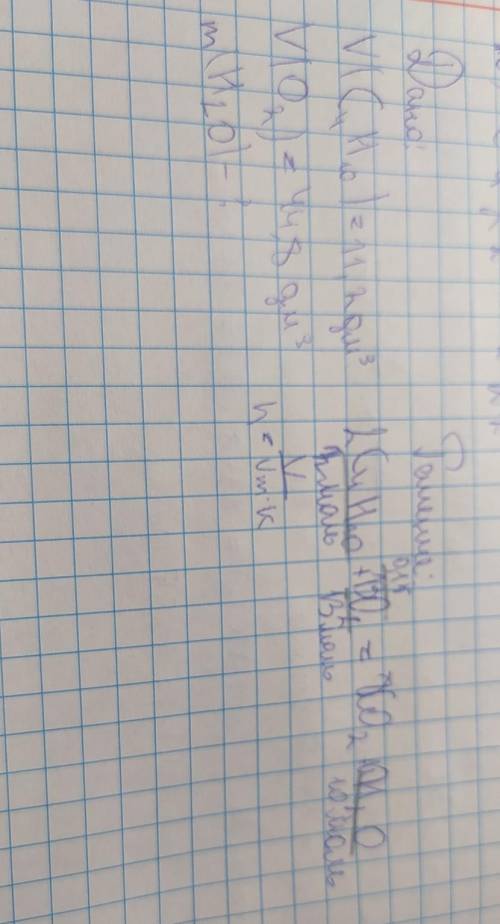 Дано:
V(C₄H₁₀) = 11,2 дм³
V(O₂) = 44,8 дм³
m(H₂O) - ?
Решение:
2C₄H₁₀ + 13O₂ = 8CO₂ + 10H₂O
2 моль 13 моль 10 моль
n = V / Vm·k